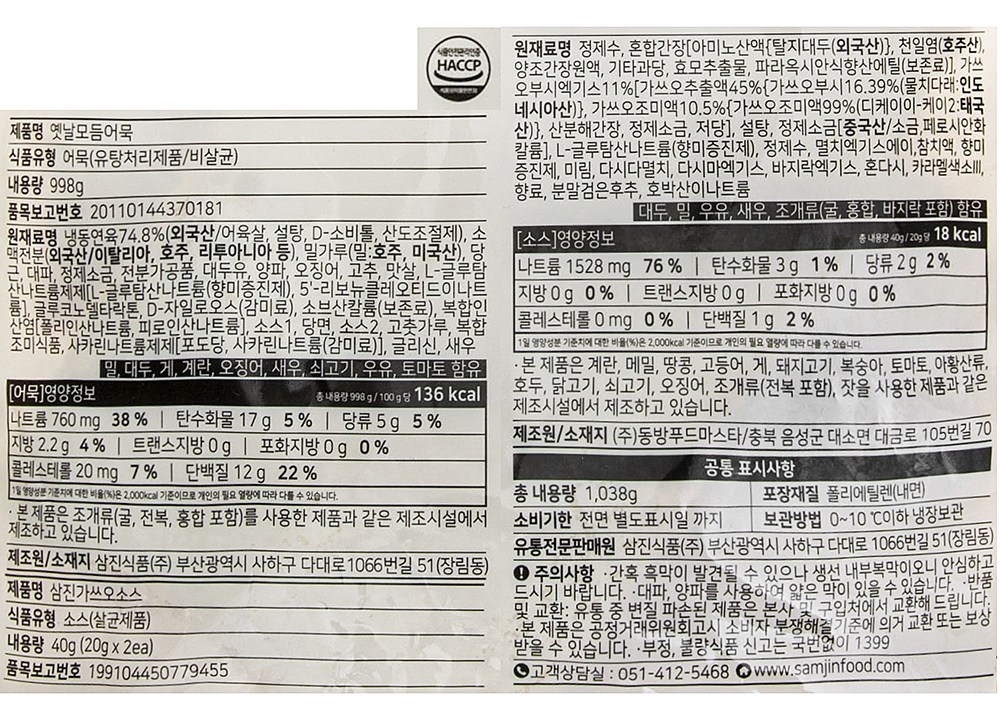 식품안전관리인증
HACCP
식품의약품안전처
제품명 옛날모듬어묵
식품유형 어묵(유탕처리제품/비살균)
내용량 998g
품목보고번호 20110144370181
원재료명 냉동연육74.8%(외국산/어육살, 설탕, D-소비톨, 산도조절제), 소
맥전분(외국산/이탈리아, 호주, 리투아니아 등), 밀가루(밀:호주, 미국산), 당
근, 대파, 정제소금, 전분가공품, 대두유, 양파, 오징어, 고추, 맛살, L-글루탐
산나트륨제제[L-글루탐산나트륨(향미증진제), 5'-리보뉴클레오티드이나트
륨], 글루코노델타락톤, D-자일로오스(감미료), 소브산칼륨(보존료), 복합인
산염[폴리인산나트륨, 피로인산나트륨], 소스1, 당면, 소스2, 고추가루, 복합
조미식품, 사카린나트륨제제[포도당, 사카린나트륨(감미료)], 글리신, 새우
밀, 대두, 게, 계란, 오징어, 새우, 쇠고기, 우유, 토마토 함유
[어묵]영양정보 총 내용량 998 g / 100 g 당 136 kcal
나트륨 760 mg 38 % | 탄수화물 17 g 5 % | 당류 5 g 5 %
지방 2.2 g 4 % | 트랜스지방 0 g | 포화지방 0 g 0 %
콜레스테롤 20 mg 7 % | 단백질 12 g 22 %
1일 영양성분 기준치에 대한 비율(%)은 2,000kcal 기준이므로 개인의 필요 열량에 따라 다를 수 있습니다.
· 본 제품은 조개류(굴, 전복, 홍합 포함)를 사용한 제품과 같은 제조시설에서
제조하고 있습니다.
제조원/소재지 삼진식품(주) 부산광역시 사하구 다대로1066번길 51(장림동)
제품명 삼진가쓰오소스
식품유형 소스(살균제품)
내용량 40g (20g x 2ea)
품목보고번호 199104450779455
원재료명 정제수, 혼합간장[아미노산액{탈지대두(외국산)}, 천일염(호주산),
양조간장원액, 기타과당, 효모추출물, 파라옥시안식향산에틸(보존료)], 가쓰
오부시엑기스11%[가쓰오추출액45%{가쓰오부시16.39%(물치다래:인도
네시아산)}, 가쓰오조미액10.5%{가쓰오조미액99%(디케이이-케이2:태국
산)}, 산분해간장, 정제소금, 저당], 설탕, 정제소금[중국산/소금,페로시안화
칼륨], L-글루탐산나트륨(향미증진제), 정제수, 멸치엑기스에이,참치액, 향미
증진제, 미림, 다시다멸치, 다시마엑기스, 바지락엑기스, 혼다시, 카라멜색소III,
향료, 분말검은후추, 호박산이나트륨
대두, 밀, 우유, 새우, 조개류(굴, 홍합, 바지락 포함) 함유
[소스]영양정보 총 내용량 40g / 20g당 18 kcal
나트륨 1528 mg 76 % | 탄수화물 3 g 1 % | 당류 2 g 2 %
지방 0 g 0 % | 트랜스지방 0 g | 포화지방 0 g 0 %
콜레스테롤 0 mg 0 % | 단백질 1 g 2 %
1일 영양성분 기준치에 대한 비율(%)은 2,000kcal 기준이므로 개인의 필요 열량에 따라 다를 수 있습니다.
· 본 제품은 계란, 메밀, 땅콩, 고등어, 게, 돼지고기, 복숭아, 토마토, 아황산류,
호두, 닭고기, 쇠고기, 오징어, 조개류(전복 포함), 잣을 사용한 제품과 같은
제조시설에서 제조하고 있습니다.
제조원/소재지 (주)동방푸드마스타/충북 음성군 대소면 대금로 105번길 70
공통 표시사항
총 내용량 1,038g 포장재질 폴리에틸렌(내면)
소비기한 전면 별도표시일 까지 보관방법 0~10 ℃이하 냉장보관
유통전문판매원 삼진식품(주) 부산광역시 사하구 다대로 1066번길 51(장림동)
주의사항 ·간혹 흑막이 발견될 수 있으나 생선 내부복막이오니 안심하고
드시기 바랍니다. ·대파, 양파를 사용하여 얇은 막이 있을 수 있습니다. ·반품
및 교환: 유통 중 변질 파손된 제품은 본사 및 구입처에서 교환해 드립니다.
·본 제품은 공정거래위원회고시 소비자 분쟁해결기준에 의거 교환 또는 보상
받을 수 있습니다. ·부정, 불량식품 신고는 국번없이 1399
고객상담실 : 051-412-5468 www.samjinfood.com